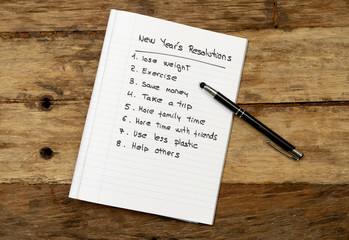 New Year's Resolutions
1. lose weight
2. Exercise
3. Save money
4. Take a trip
5. More family time
6. More time with friends
7. Use less plastic
8. Help others